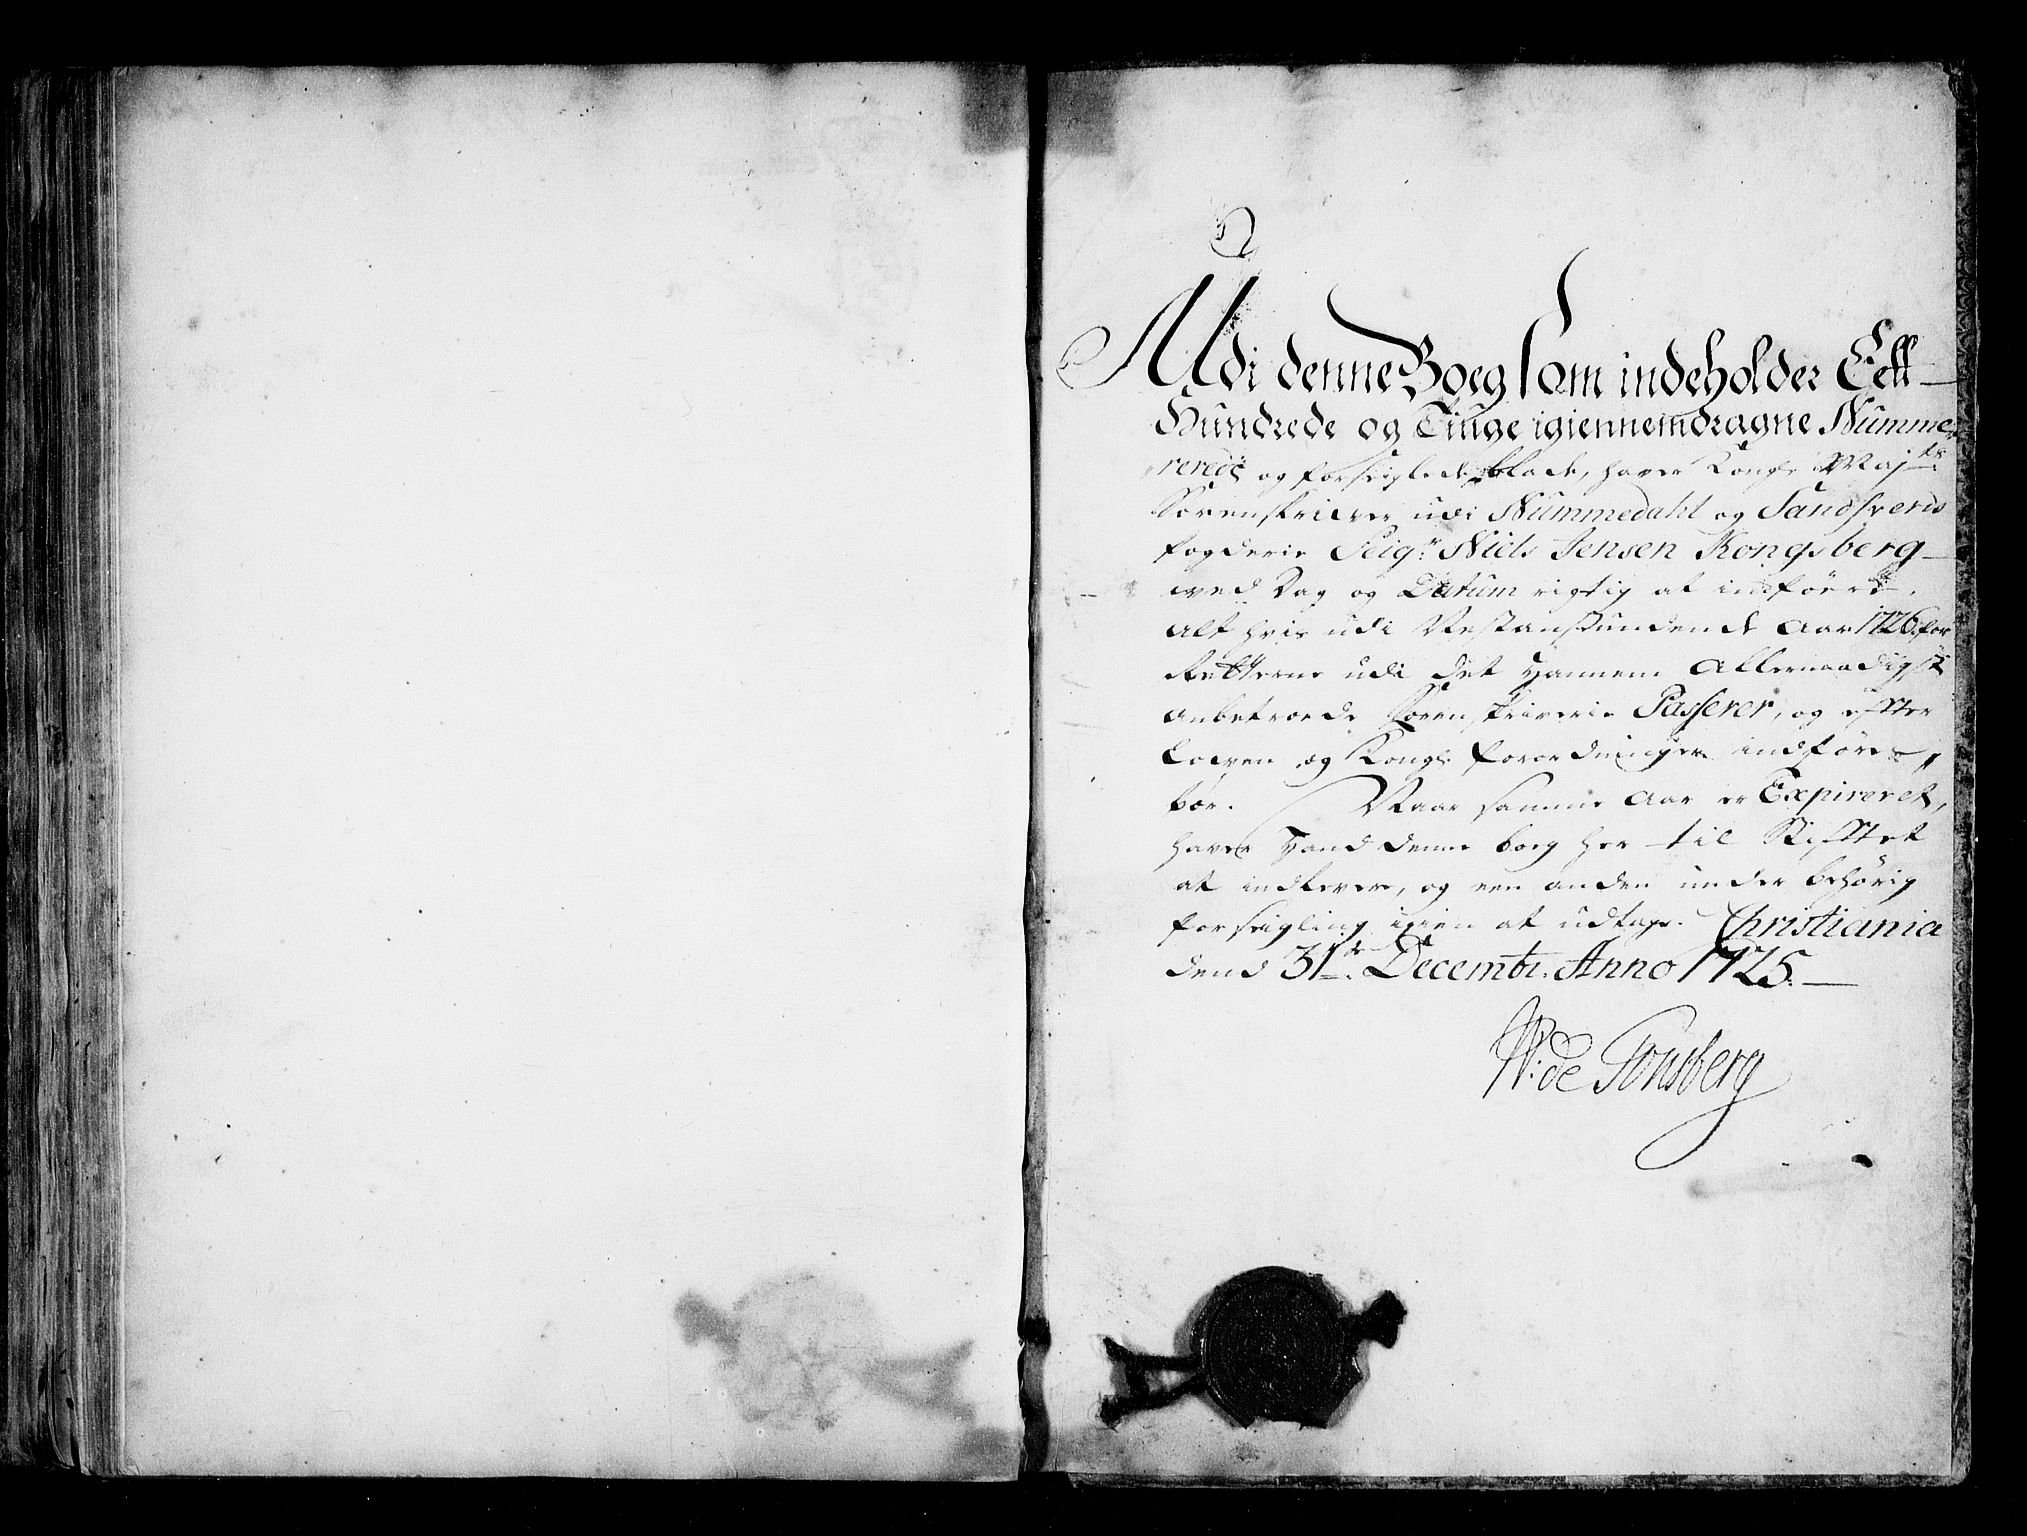 Udi denne Boeg som indeholder Eett
Hundrede og Tiuge igiennemdragne Numme-
rerede og forseiglede blade, haver Kongl. Maj.ts
Sorenskriver udi Nummedahl og Sandsverds
fogderie Seig.r Niels Jensen Kongsberg
ved Dag og Datum rigtig at indføere
alt hvis udi Nestanstundende Aar 1726 for
Retterne udi det hannem Allernaadigst
anbetroede Sorenskriverie Passerer, og effter
Loven og Kongl. forordninger indføres
bør. Naar samme Aar er Expireret,
haver hand denne boeg her til Stifftet
at indlevere, og een anden under behørig
forseigling igien at udtage. Christiania
dend 31.te Decembr. Anno 1725.
W: de Tonsberg